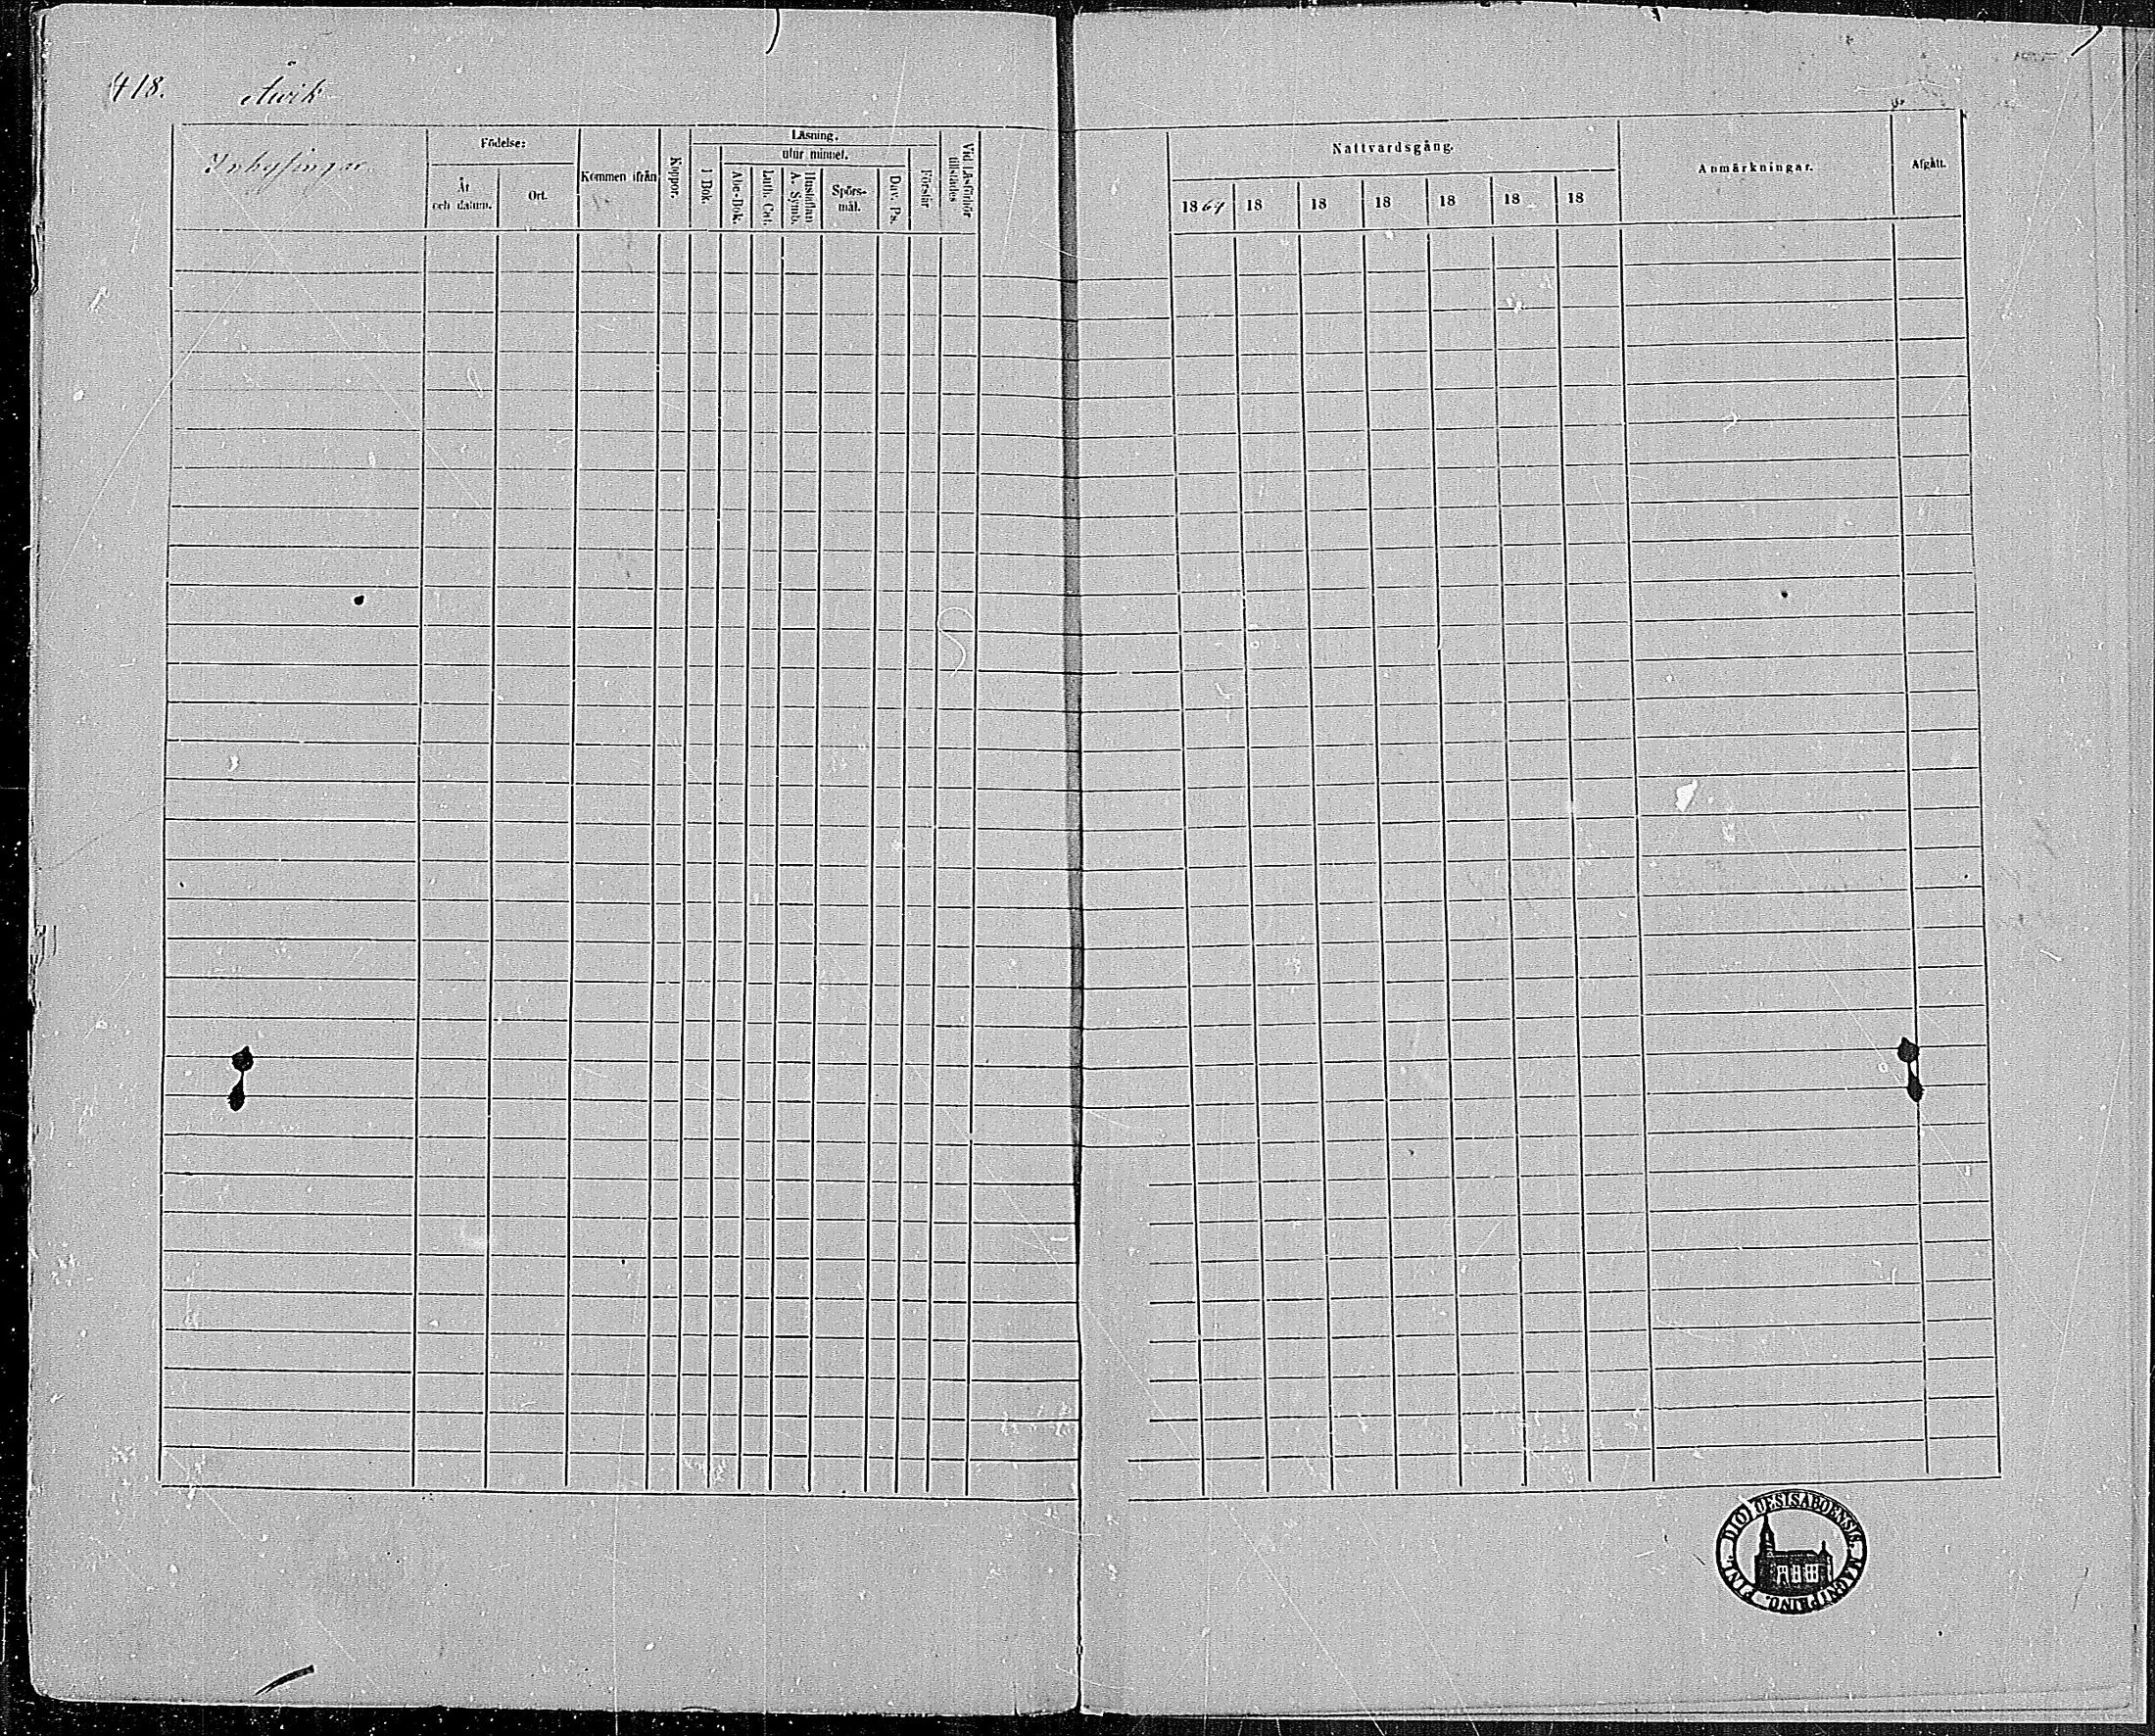 418. Åwik
Inhysingar
Födelse:
År och datum.
Ort.
Kommen ifrån
Koppor.
Läsning.
utur minnet.
I Bok.
Abc-Bok.
Luth. Cat.
Hustaflan A. Symb.
Spörs-
mål.
Dav. Ps.
Förstår
Vid Läsförhör tillstädes
Nattvardsgång.
1864 18 18 18 18 18 18
Anmärkningar.
Afgått.
DIOECESIS ABOENSIS. MAGNI PRINC. FINL.